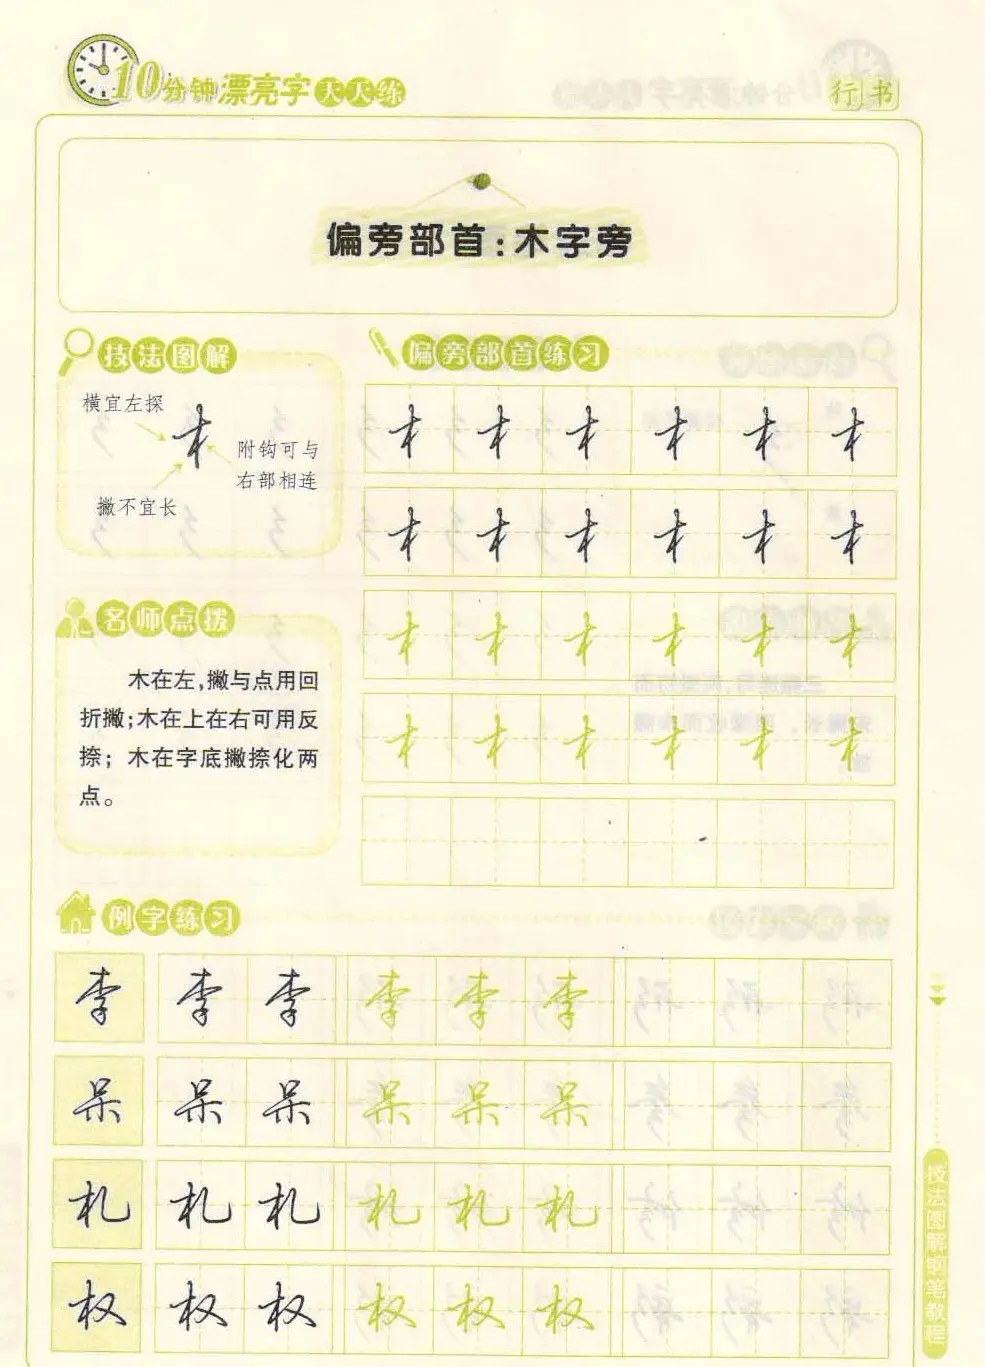 10分钟漂亮字天天练
行书
偏旁部首:木字旁
技法图解
横宜左探
附钩可与
右部相连
撇不宜长
偏旁部首练习
木 木 木 木 木 木
木 木 木 木 木 木
木 木 木 木 木 木
木 木 木 木 木 木
名师点拨
木在左,撇与点用回
折撇;木在上在右可用反
捺;木在字底撇捺化两
点。
例字练习
李 李 李 李 李 李
呆 呆 呆 呆 呆 呆
札 札 札 札 札 札
权 权 权 权 权 权
技法图解钢笔教程